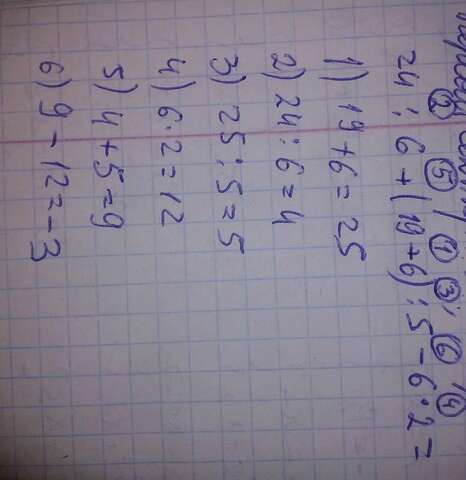 ② ⑤ ① ③ ⑥ ④
24 : 6 + (19+6) : 5 - 6 · 2 =
1) 19 + 6 = 25
2) 24 : 6 = 4
3) 25 : 5 = 5
4) 6 · 2 = 12
5) 4 + 5 = 9
6) 9 - 12 = -3